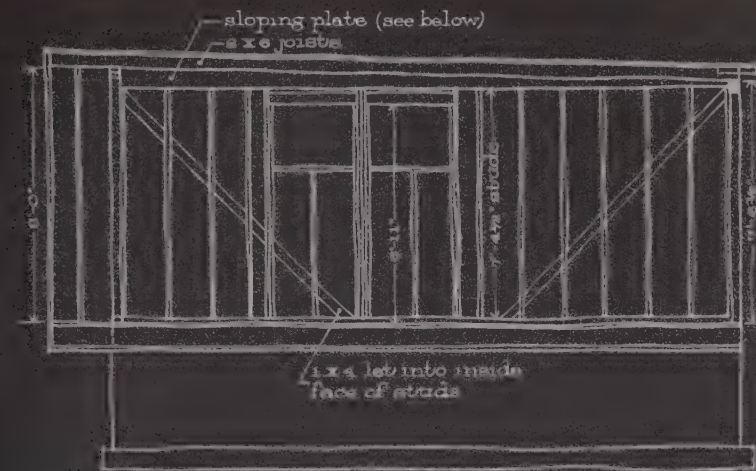 sloping plate (see below)
2 x 6 joists
8'-0"
studs
1 x 4 let into inside
face of studs